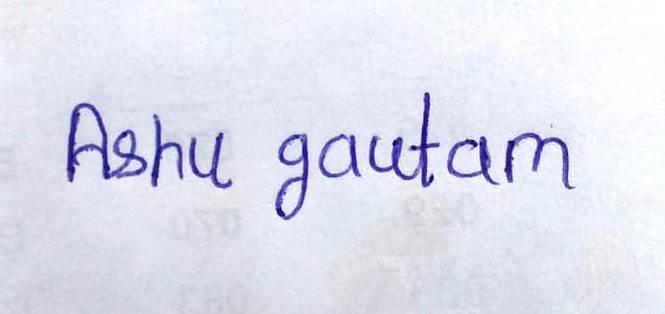 Ashu gautam